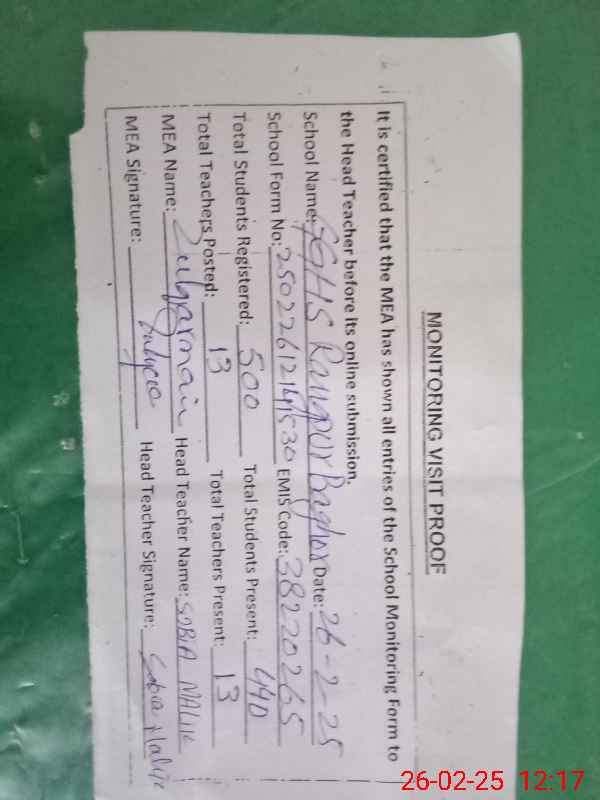 MONITORING VISIT PROOF
It is certified that the MEA has shown all entries of the School Monitoring Form to
the Head Teacher before its online submission.
School Name: GGHS Rangpur Baghor Date: 26-2-25
School Form No: EMIS Code: 38220265
Total Students Registered: 500 Total Students Present: 440
Total Teachers Posted: 13 Total Teachers Present: 13
MEA Name: Head Teacher Name: SOBIA MALIK
MEA Signature: Head Teacher Signature: Sobia Malik
26-02-25 12:17